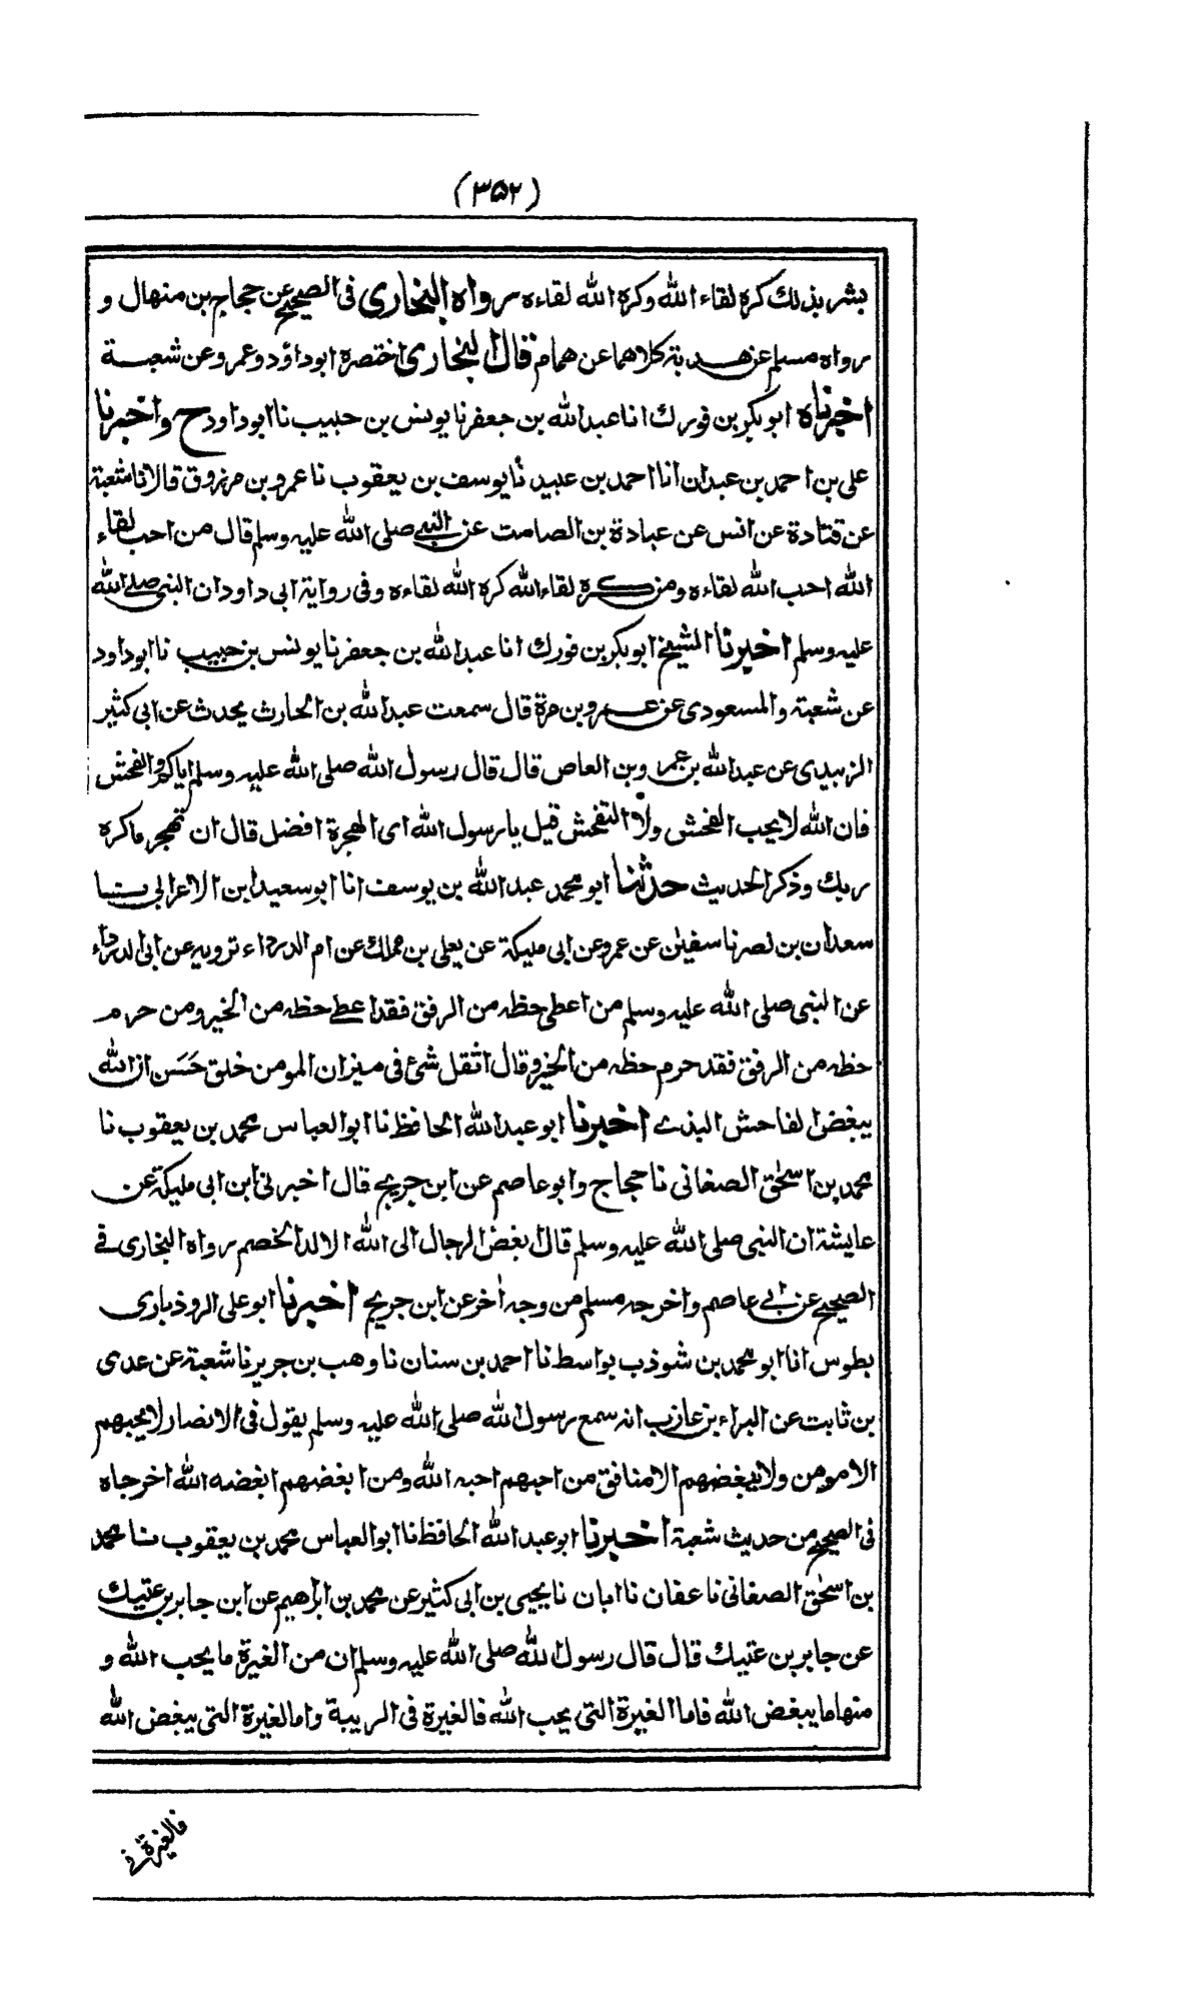 (٣٥٢)
بشر بذلك كره لقاء الله وكره الله لقاءه رواه البخاري فى الصحيح عن حجاج بن منهال و
رواه مسلم عن هدبة كلاهما عن همام قال البخارى اختصره ابوداؤد وعمرو عن شعبة
اخبرناه ابوبكر بن فورك انا عبدالله بن جعفر نا يونس بن حبيب نا ابوداود ح واخبرنا
على بن احمد بن عبدان انا احمد بن عبيد نا يوسف بن يعقوب نا عمرو بن مرزوق قالا نا شعبة
عن قتادة عن انس عن عبادة بن الصامت عن النبي صلى الله عليه وسلم قال من احب لقاء
الله احب الله لقاءه ومن كره لقاء الله كره الله لقاءه وفى رواية ابى داود ان النبى صلى الله
عليه وسلم اخبرنا الشيخ ابوبكر بن فورك انا عبدالله بن جعفر نا يونس بن حبيب نا ابوداود
عن شعبة والمسعودى عن عمرو بن مرة قال سمعت عبدالله بن الحارث يحدث عن ابى كثير
الزبيدى عن عبدالله بن عمرو بن العاص قال قال رسول الله صلى الله عليه وسلم اياكم والفحش
فان الله لا يحب الفحش ولا التفحش قيل يا رسول الله اى الهجرة افضل قال ان تهجر ماكره
ربك وذكر الحديث حدثنا ابو محمد عبدالله بن يوسف انا ابو سعيد ابن الاعرابى نا
سعدان بن نصر نا سفيٰن عن عمرو عن ابى مليكة عن يعلى بن مملك عن ام الدرداء ترويه عن ابى الدرداء
عن النبى صلى الله عليه وسلم من اعطى حظه من الرفق فقد اعطى حظه من الخير ومن حرم
حظه من الرفق فقد حرم حظه من الخير وقال اثقل شئ فى ميزان المومن خلق حَسَن ان الله
يبغض الفاحش البذى اخبرنا ابو عبدالله الحافظ نا ابوالعباس محمد بن يعقوب نا
محمد بن اسحٰق الصغانى نا حجاج وابوعاصم عن ابن جريج قال اخبرنى ابن ابى مليكة عن
عايشة ان النبى صلى الله عليه وسلم قال ابغض الرجال الى الله الالد الخصم رواه البخارى فى
الصحيح عن ابى عاصم واخرجه مسلم من وجه اٰخر عن ابن جريج اخبرنا ابو على الروذبارى
بطوس انا ابو محمد بن شوذب بواسط نا احمد بن سنان نا وهب بن جرير نا شعبة عن عدى
بن ثابت عن البراء بن عازب انه سمع رسول الله صلى الله عليه وسلم يقول فى الانصار لا يحبهم
الا مومن ولا يبغضهم الا منافق من احبهم احبه الله ومن ابغضهم ابغضه الله اخرجاه
فى الصحيح من حديث شعبة اخبرنا ابو عبدالله الحافظ نا ابوالعباس محمد بن يعقوب نا محمد
بن اسحٰق الصغانى نا عفان نا ابان نا يحيى بن ابى كثير عن محمد بن ابراهيم عن ابن جابر بن عتيك
عن جابر بن عتيك قال قال رسول الله صلى الله عليه وسلم ان من الغيرة ما يحب الله و
منها ما يبغض الله فاما الغيرة التى يحب الله فالغيرة فى الريبة واما الغيرة التى يبغض الله
فالغيرة فى